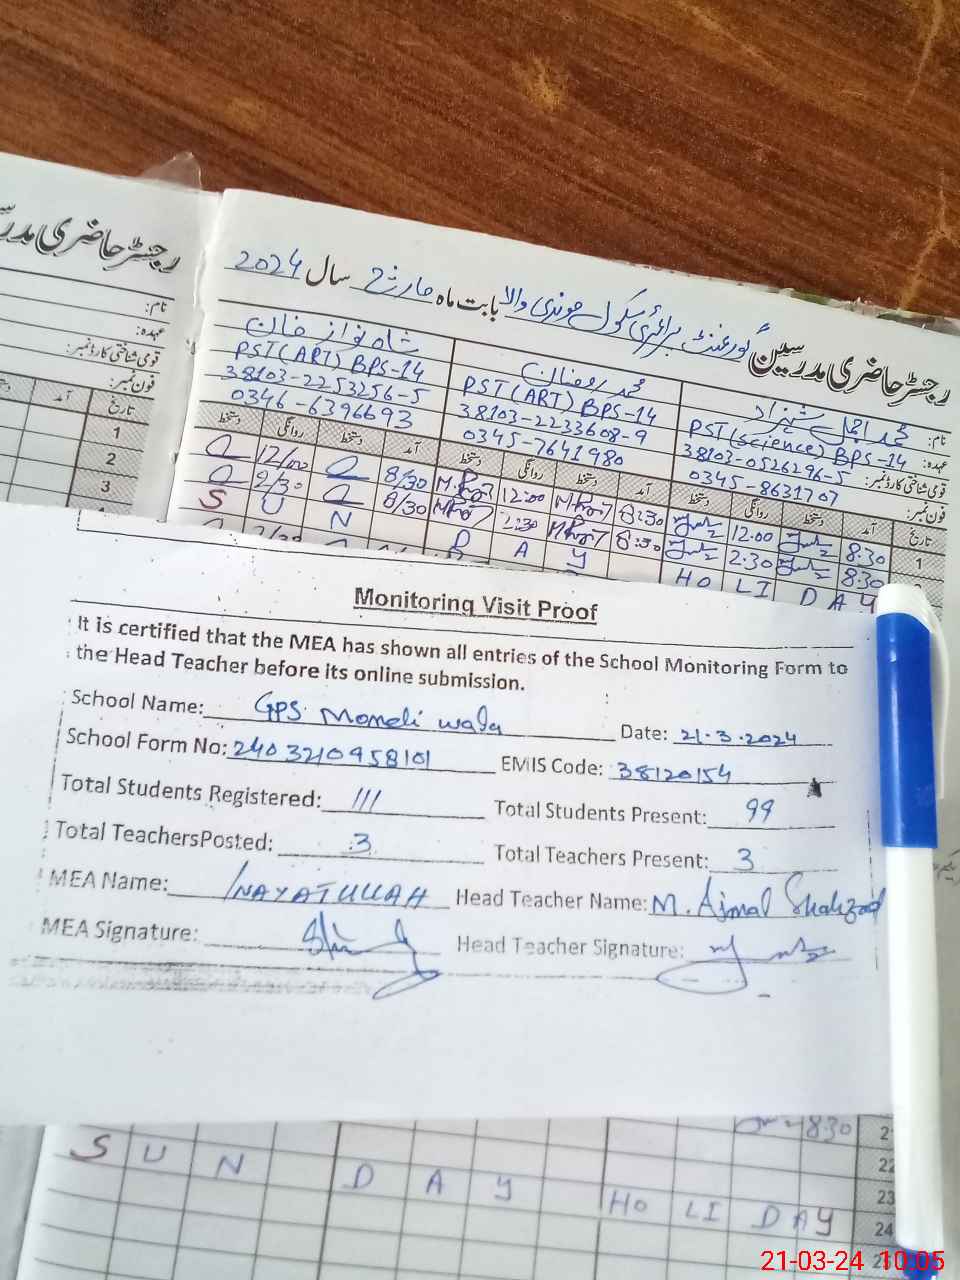 رجسٹر حاضری مدرسین گورنمنٹ پرائمری سکول موندی والا بابت ماہ مارچ سال 2024
رجسٹر حاضری
نام: محمد اجمل شہزاد
محمد رمضان
شاہ نواز خان
عہدہ: PST (Science) BPS-14
PST (ART) BPS-14
PST (ART) BPS-14
قومی شناختی کارڈ نمبر: 38103-0526296-5
38103-2233608-9
38103-2253256-5
فون نمبر: 0345-8631707
0345-7641980
0346-6396693
تاریخ آمد دستخط روانگی دستخط آمد دستخط روانگی دستخط آمد دستخط روانگی دستخط
1 8:30 12:00 8:30 12:00 8/30 12/00
8:30 2:30 8:30 2:30 8/30 2/30
S U N D A Y HO LI D A Y
نام:
عہدہ:
قومی شناختی کارڈ نمبر:
فون نمبر:
تاریخ آمد
1
2
3
Monitoring Visit Proof
It is certified that the MEA has shown all entries of the School Monitoring Form to
the Head Teacher before its online submission.
School Name: GPS Mondi wala Date: 21.3.2024
School Form No: 2403210958101 EMIS Code: 38120154
Total Students Registered: 111 Total Students Present: 99
Total TeachersPosted: 3 Total Teachers Present: 3
MEA Name: INAYATULLAH Head Teacher Name: M. Ajmal Shahzad
MEA Signature: Head Teacher Signature:
830 21
22
23
S U N D A Y HO LI D A Y 24
25
21-03-24 10:05